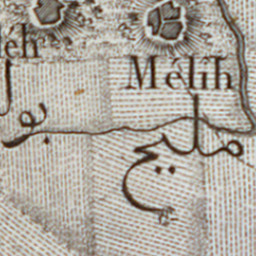 éh
Mélîh
مليح